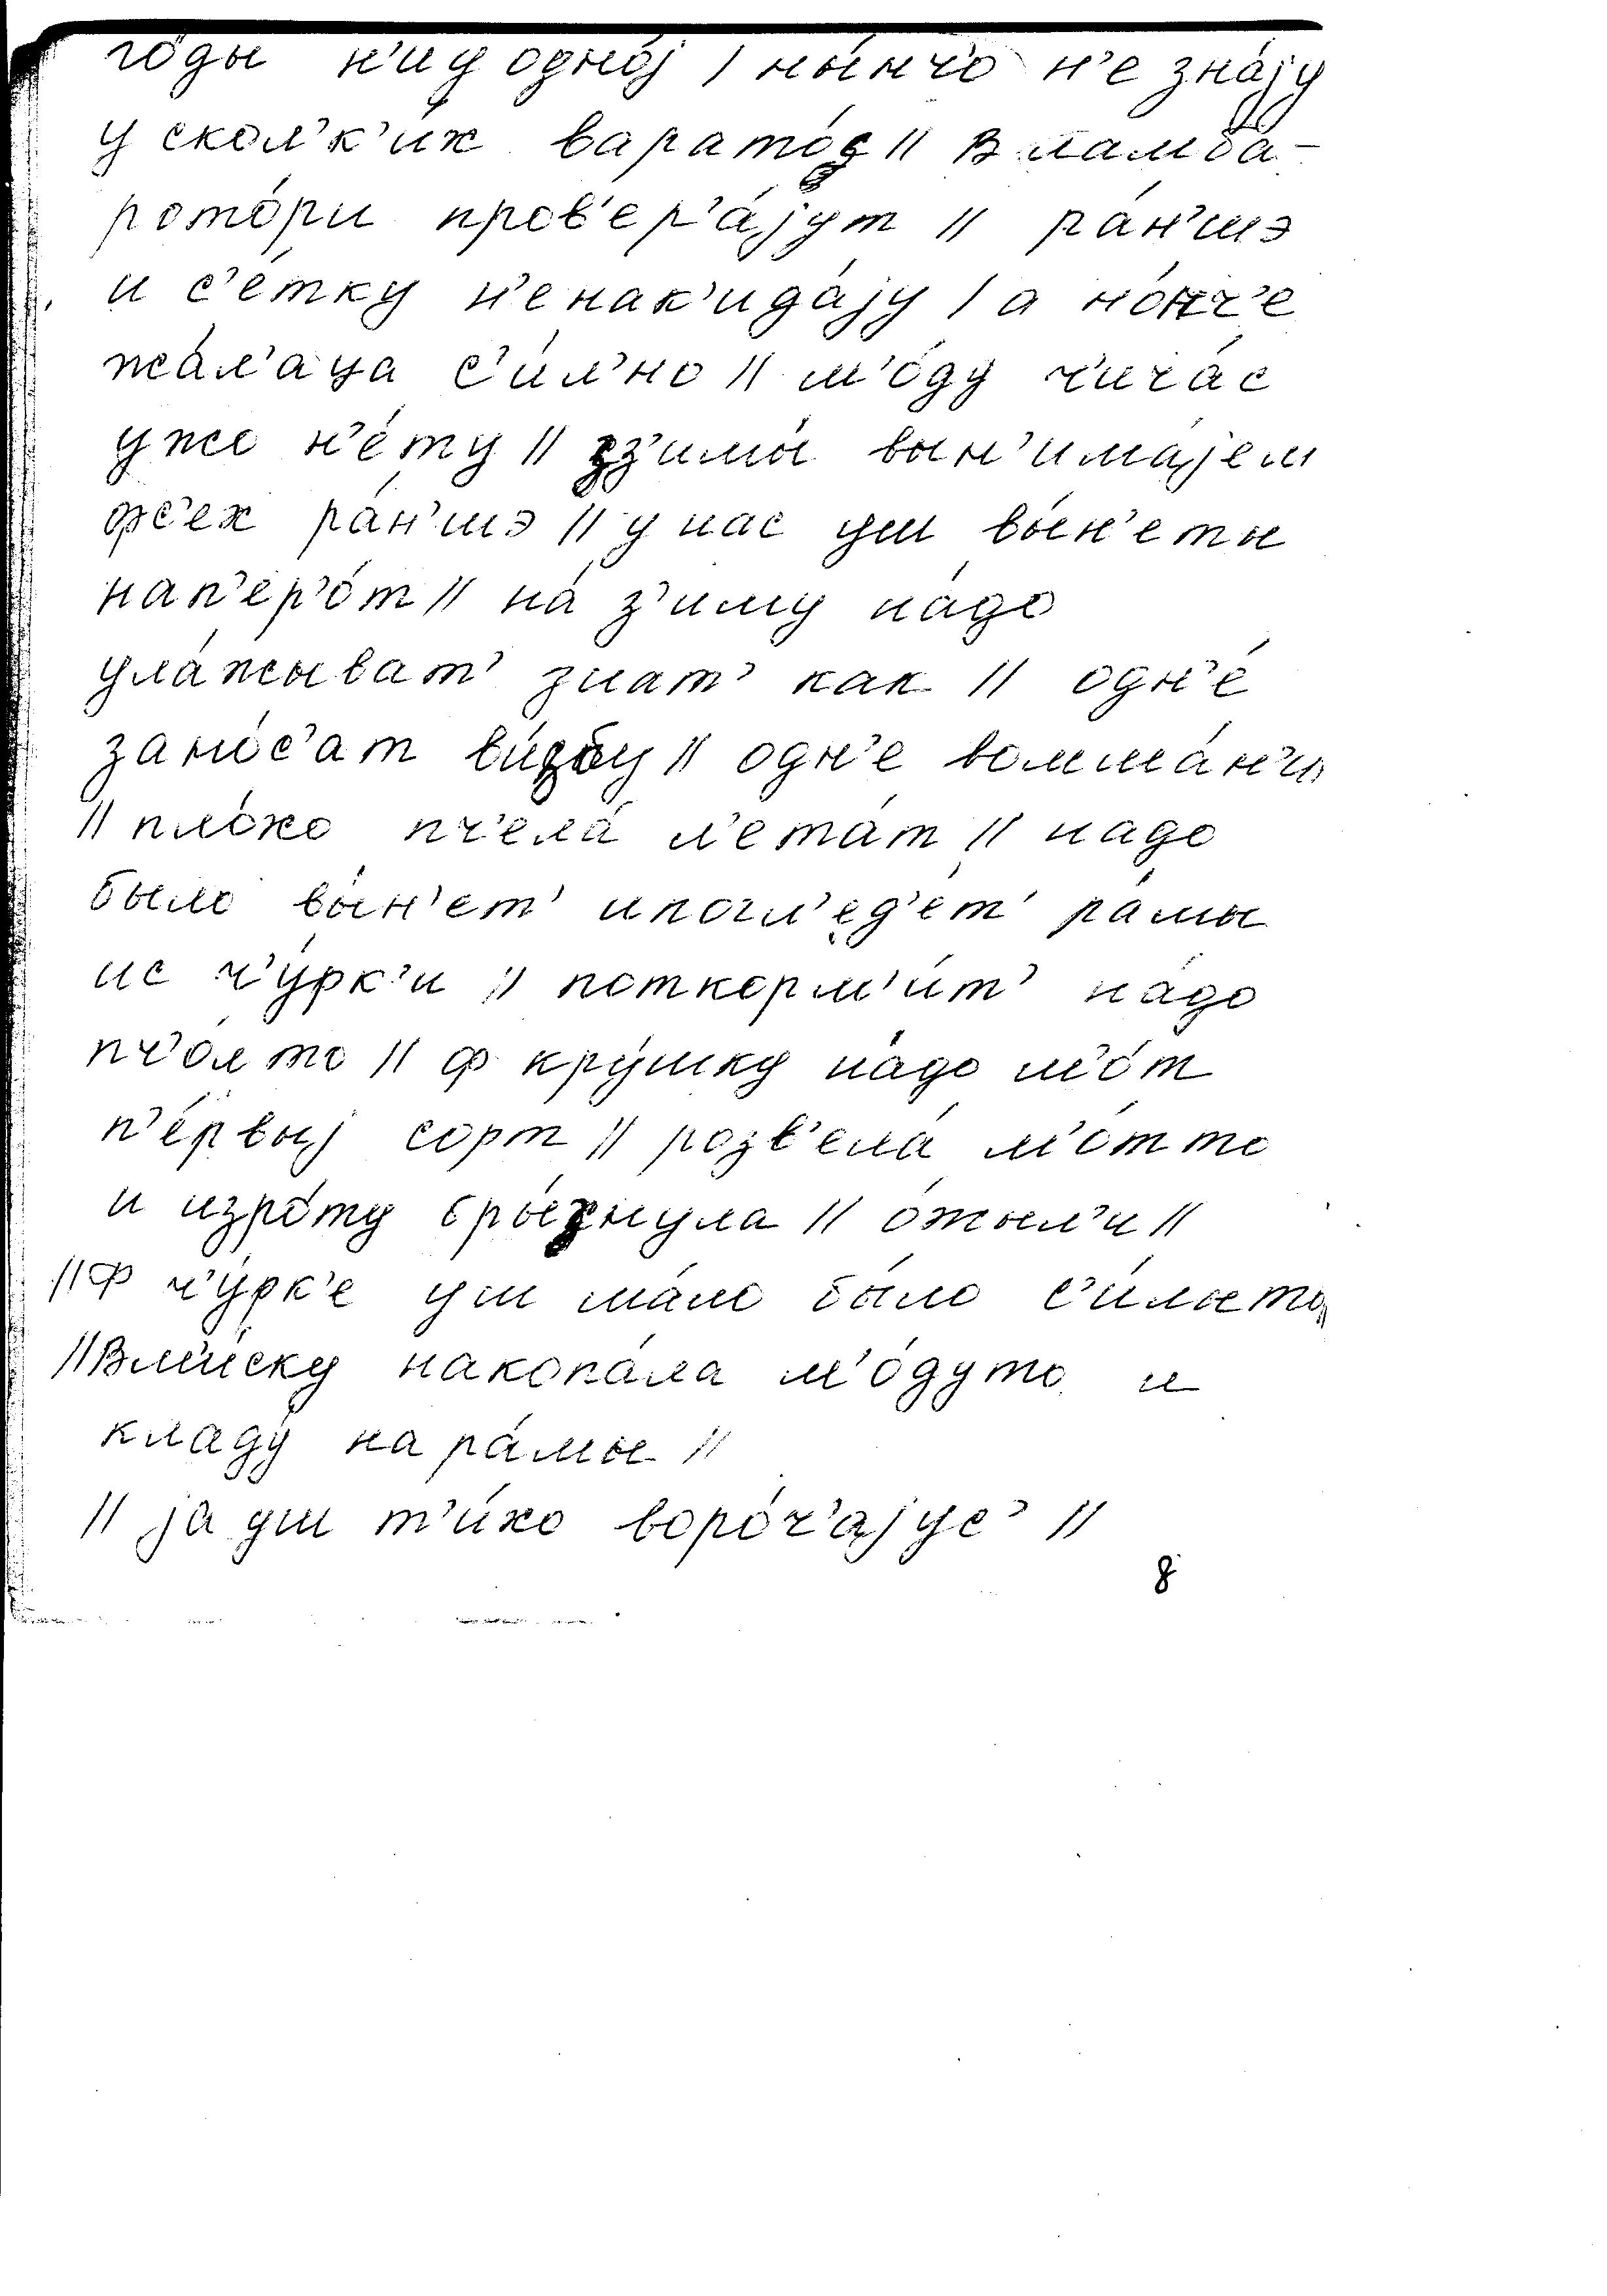 го́ды н'иу одно́j / ны́нчо н'е зна́jу
у скол'к'и́х варато́в // В ламба-
рото́ри пров'ер'а́jут // ра́н'шэ
и с'е́тку н'енак'ида́jу / а но́нч'е
жа́л'аца с'и́л'но // м'о́ду ч'ича́с
ужо н'е́ту // зз'имы́ вын'има́jем
фс'ех ра́н'шэ // у нас уш вы́н'еты
нап'ер'о́т // на́ з'иму на́до
ула́жыват' знат' как // одн'е́
зано́с'ат ви́збу // одн'е́ вомша́н'и
// пло́хо пч'ела́ л'ета́т // надо
было вы́н'ет' ипогл'ед'е́т' ра́мы
ис ч'у́рк'и // поткорм'и́т' на́до
пч'о́л то // ф кру́шку на́до м'о́т
п'е́рвыj сорт // розв'ела́ м'о́т то
и изро́ту бры́знула // о́жыл'и //
// Ф ч'у́рк'е уш ма́ло бы́ло с'и́лыто
// Вми́ску накопа́ла м'о́дуто и
кладу́ на ра́мы //
// jа уш т'и́хо воро́ч'аjус' //
8